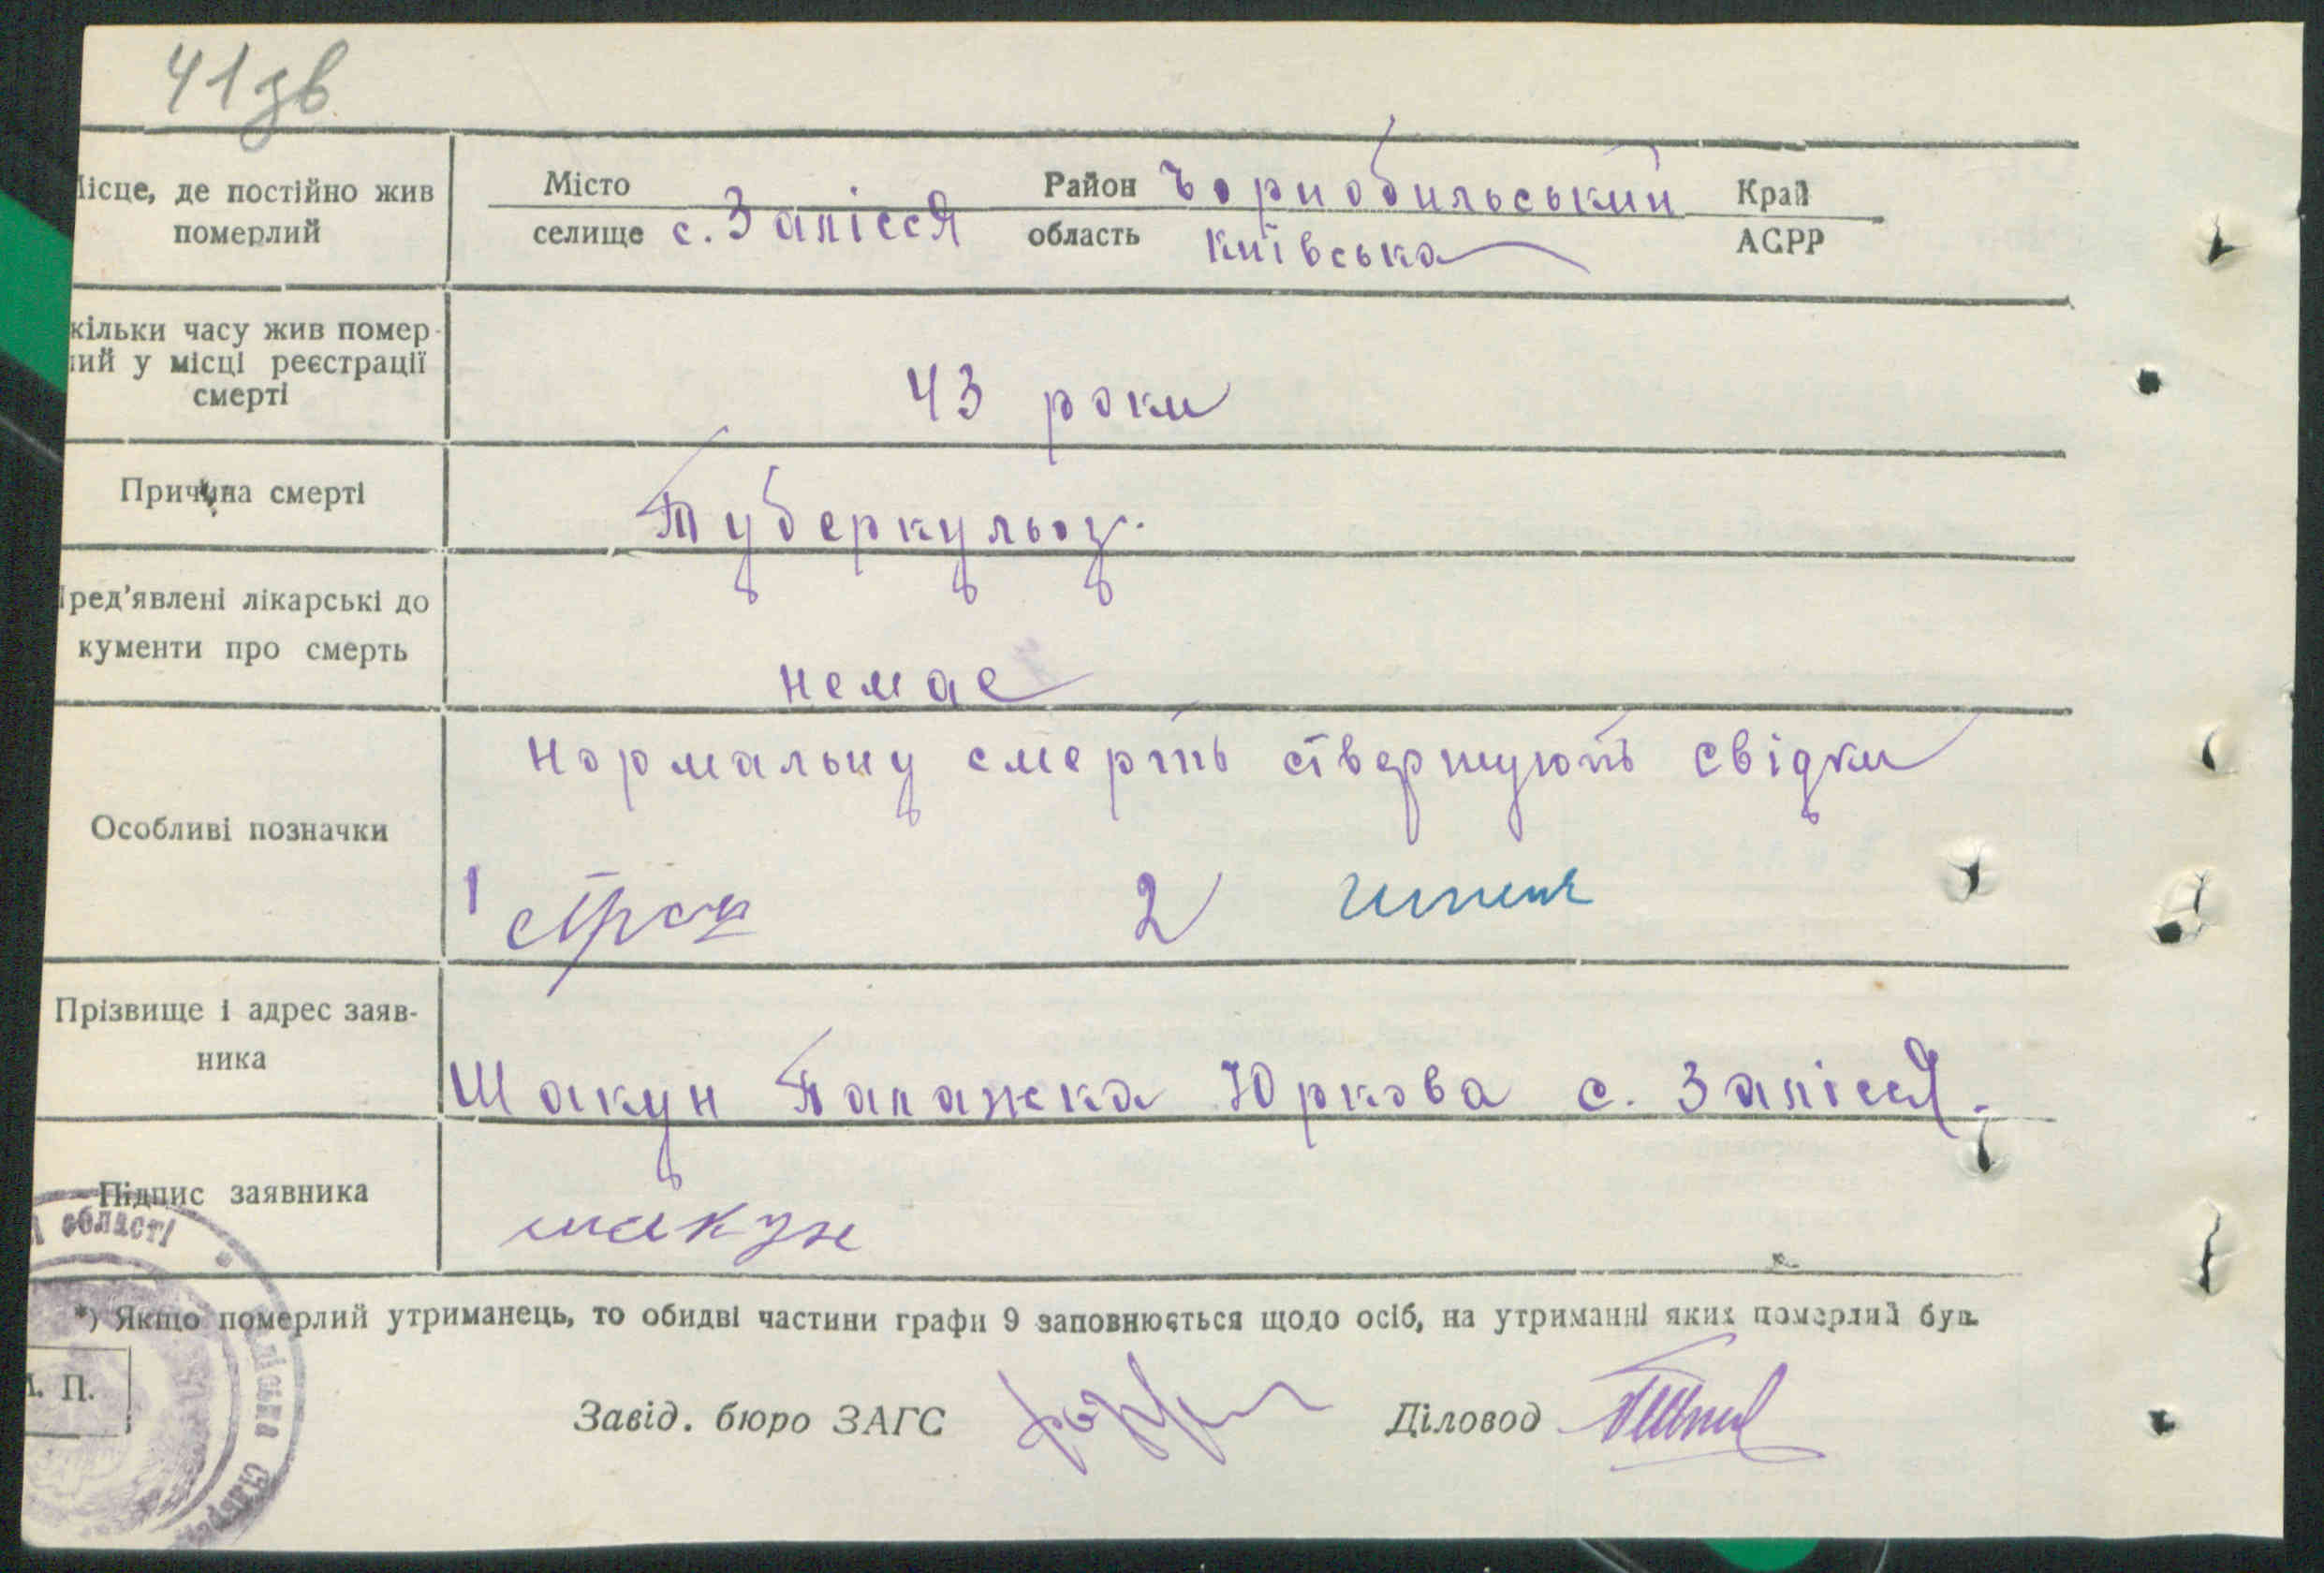 41зв
Місце, де постійно жив
померлий
Місто
селище с. Залісся
Район Чорнобильський
область Київська
Край
АСРР
кільки часу жив помер-
лий у місці реєстрації
смерті
43 роки
Причина смерті
Туберкульоз.
Пред'явлені лікарські до
кументи про смерть
немає
Особливі позначки
Нормальну смерть ствержують свідки
1
2
Прізвище і адрес заяв-
ника
Шакун Палажка Юркова с. Залісся.
Підпис заявника
шакун
області
*) Якщо померлий утриманець, то обидві частини графи 9 заповнюється щодо осіб, на утриманні яких померлий був.
М. П.
Завід. бюро ЗАГС
Діловод